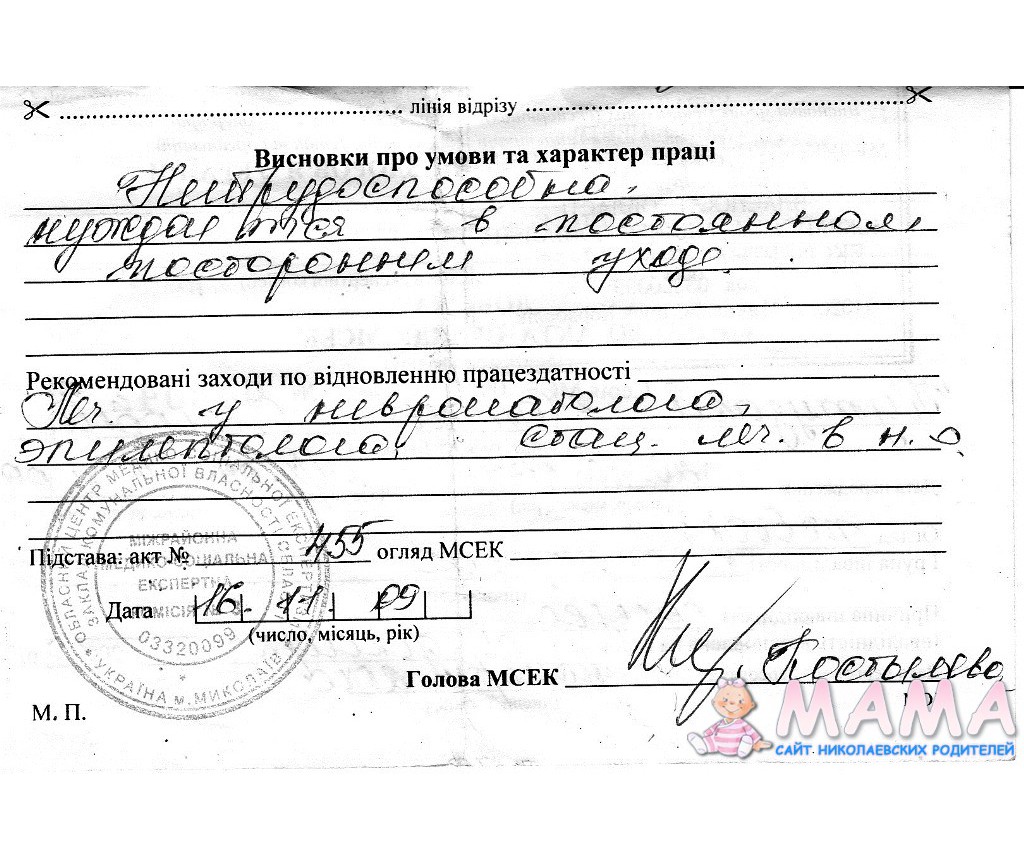 лінія відрізу
Висновки про умови та характер праці
Нетрудоспособна,
нуждается в постоянном
постороннем уходе.
Рекомендовані заходи по відновленню працездатності
Леч. у невропатолога,
эпилептолога. Стац. леч. в н.о
Підстава: акт № 455 огляд МСЕК
Дата 16 11 09
(число, місяць, рік)
Голова МСЕК
М. П.
МІЖРАЙОННА
МЕДИКО-СОЦІАЛЬНА
ЕКСПЕРТНА
КОМІСІЯ
03320099
УКРАЇНА м. МИКОЛАЇВ
МАМА
САЙТ НИКОЛАЕВСКИХ РОДИТЕЛЕЙ